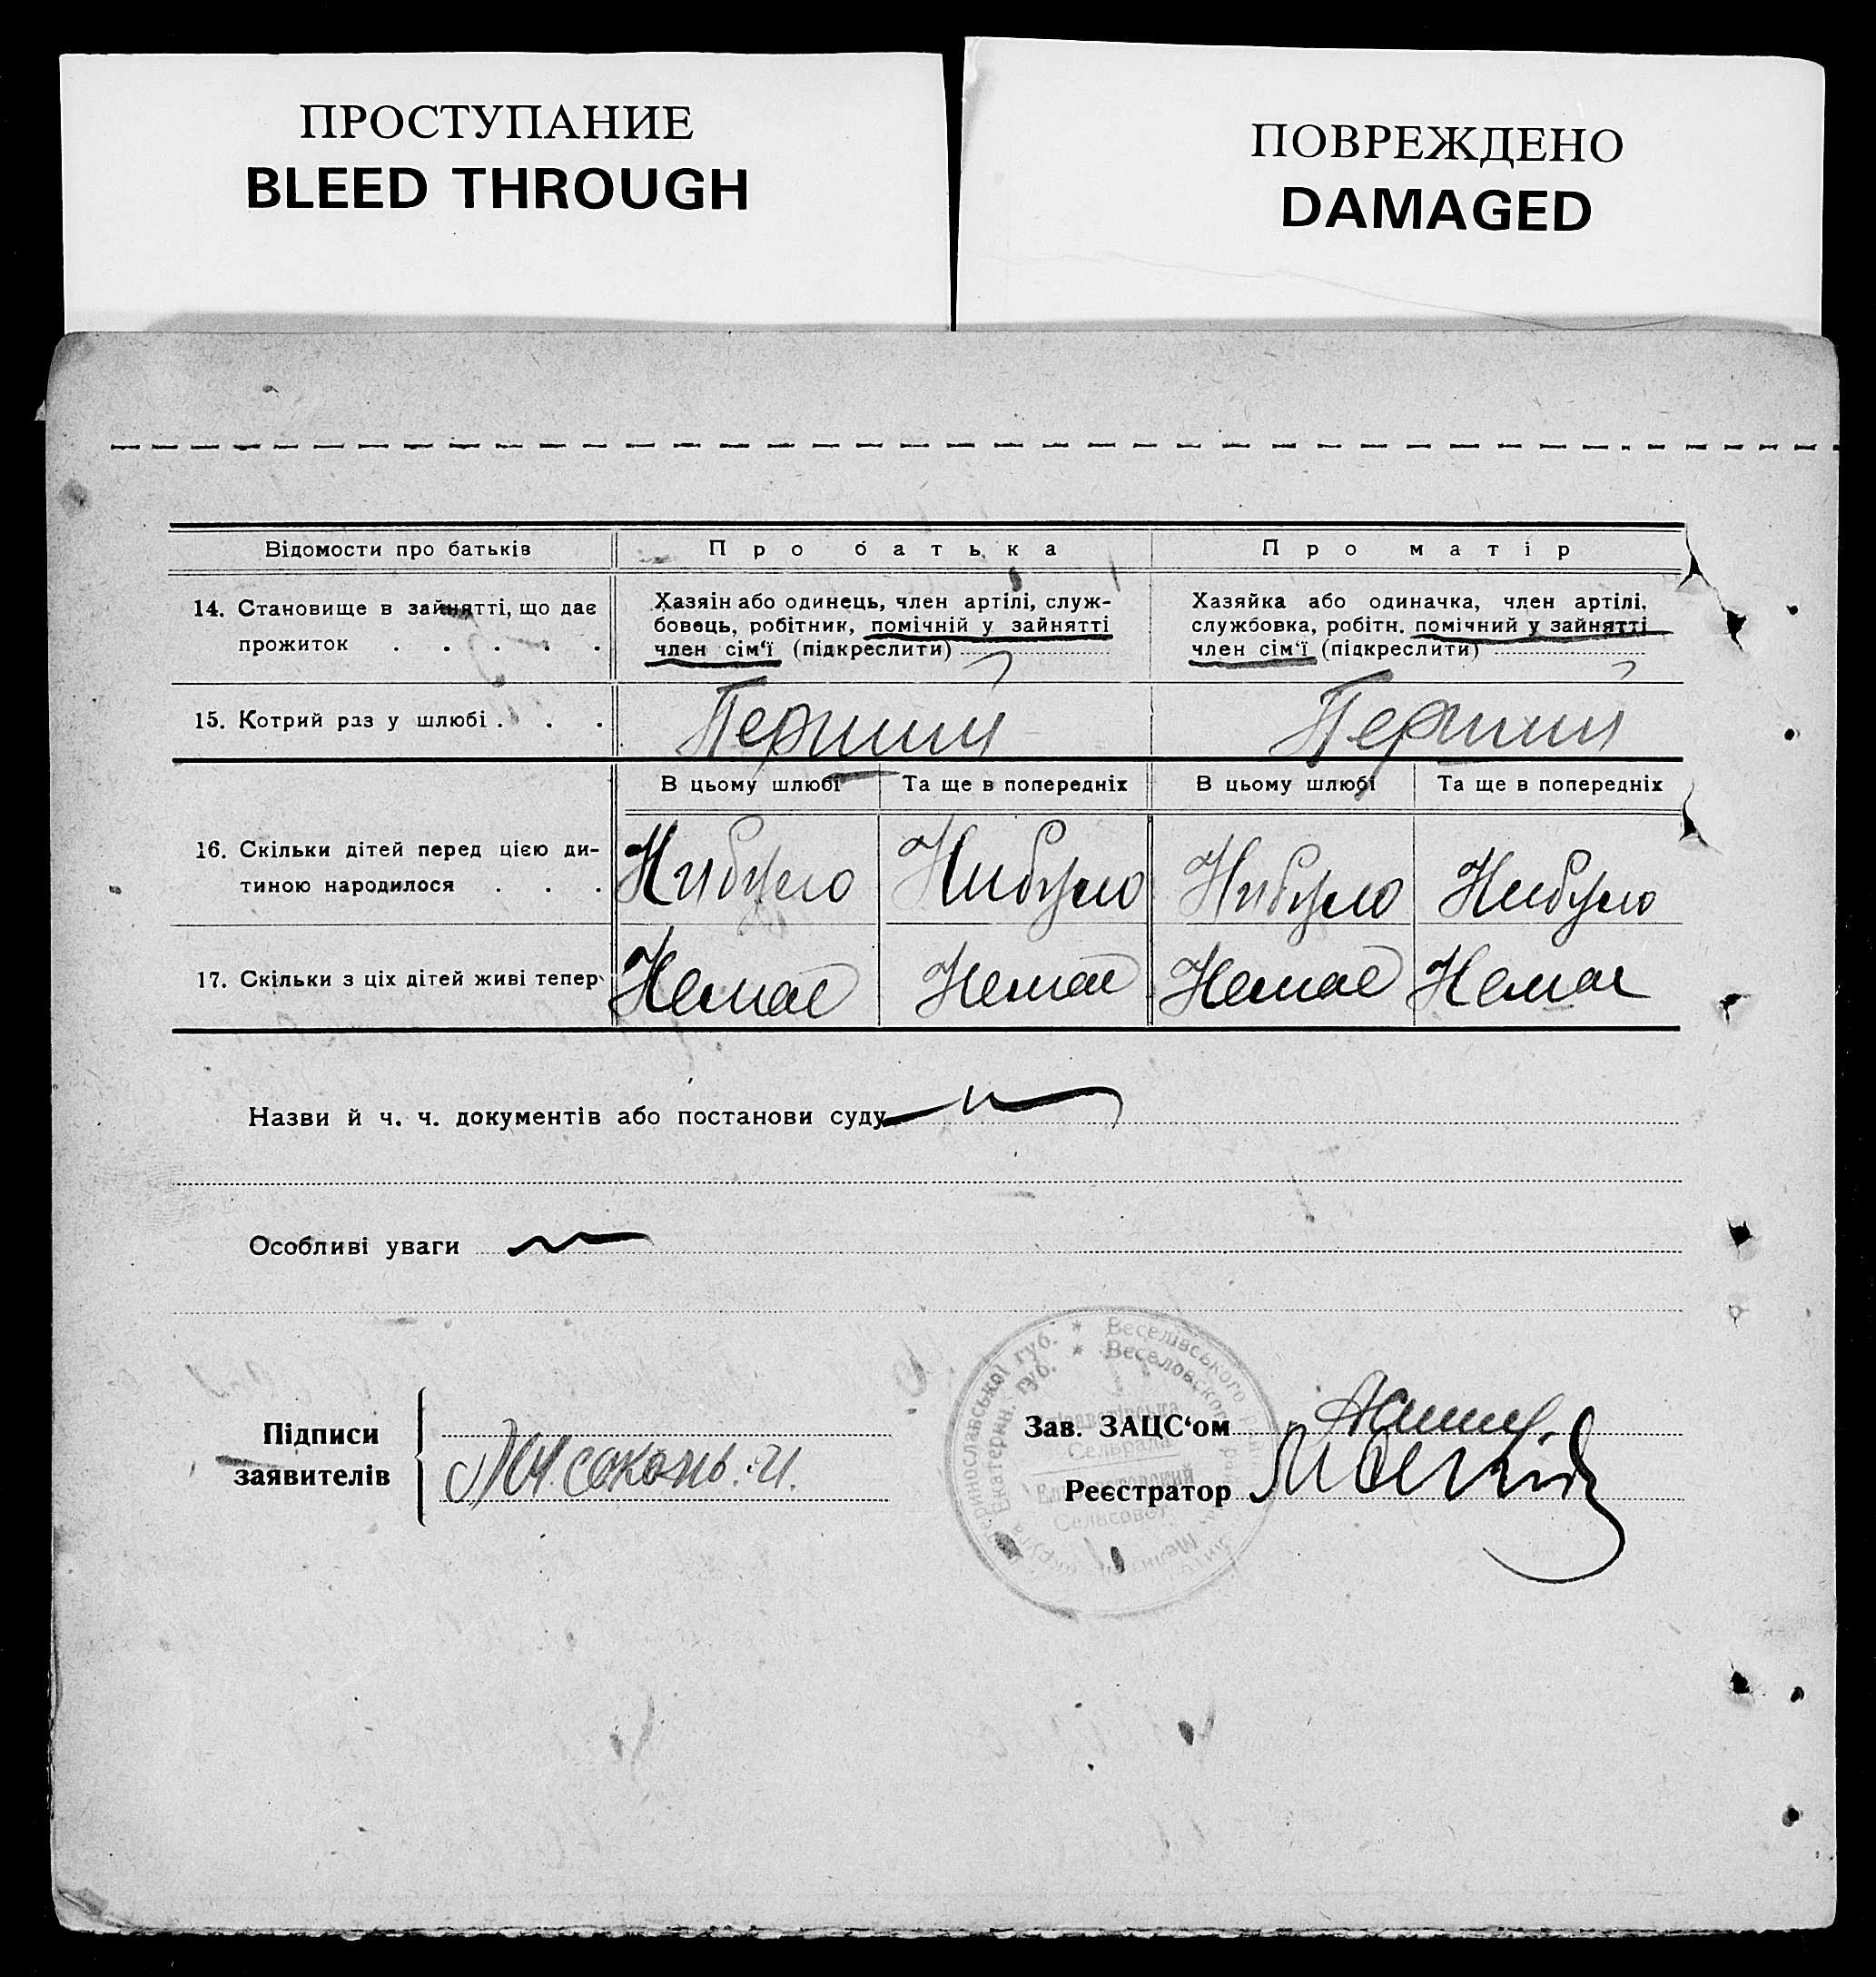 ПРОСТУПАНИЕ
BLEED THROUGH
ПОВРЕЖДЕНО
DAMAGED
Відомости про батьків
Про батька
Про матір
14. Становище в зайнятті, що дає
прожиток . . . . .
Хазяін або одинець, член артілі, служ-
бовець, робітник, помічній у зайнятті
член сім‘ї (підкреслити)
Хазяйка або одиначка, член артілі,
службовка, робітн. помічний у зайнятті
член сім‘ї (підкреслити)
15. Котрий раз у шлюбі . . .
Перший
Перший
В цьому шлюбі
Та ще в попередніх
В цьому шлюбі
Та ще в попередніх
16. Скільки дітей перед цією ди-
тиною народилося . . .
Нибуло
Нибуло
Нибуло
Нибуло
17. Скільки з ціх дітей живі тепер
Немае
Немае
Немае
Немае
Назви й ч. ч. документів або постанови суду
Особливі уваги
Підписи
заявителів
Зав. ЗАЦС‘ом
Реєстратор
Веселівського
Веселовского
губ.
Екатерин. губ.
Сельрада